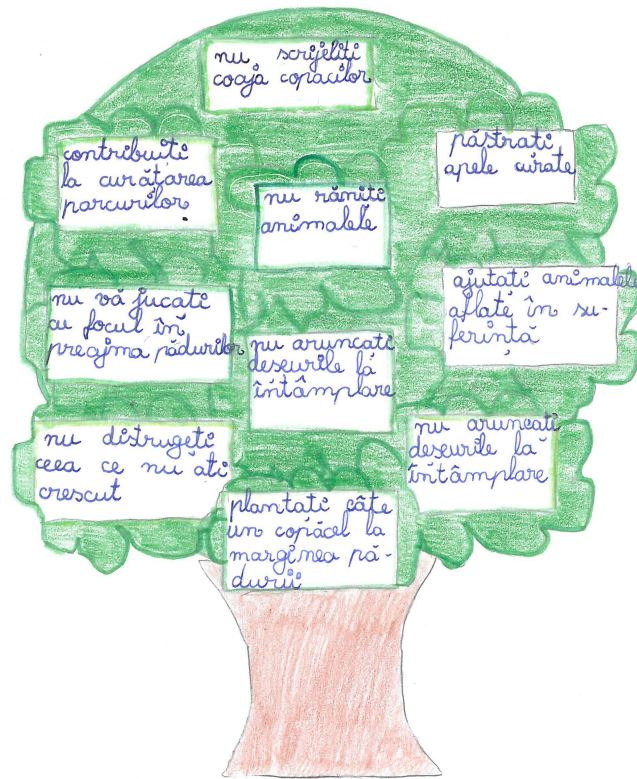 nu scrijeliți
coaja copacilor
contribuiți
la curățarea
parcurilor
păstrați
apele curate
nu răniți
animalele
nu vă jucați
cu focul în
preajma pădurilor
ajutați animalele
aflate în su-
ferință
nu aruncați
deșeurile la
întâmplare
nu distrugeți
ceea ce nu ați
crescut
nu aruncați
deșeurile la
întâmplare
plantați câte
un copăcel la
marginea pă-
durii